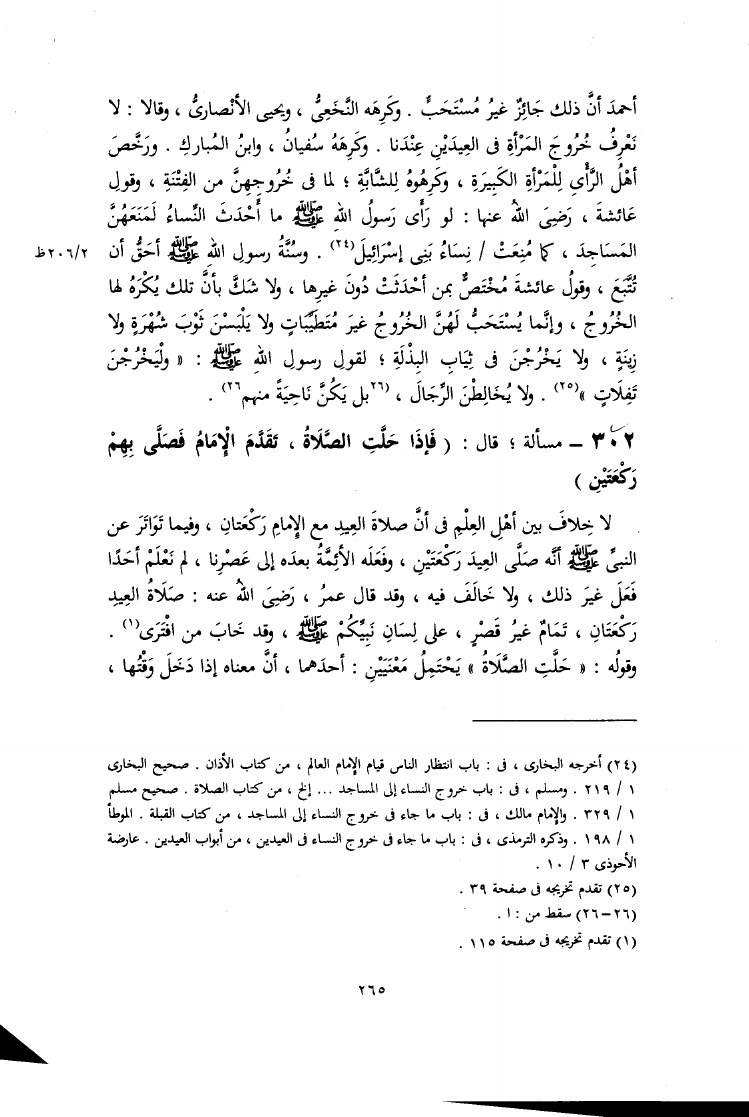 أحمدَ أنَّ ذلك جَائِزٌ غيرُ مُسْتَحَبٍّ . وكَرِهَه النَّخَعِىُّ ، ويحيى الأنْصارىُّ ، وقالا : لا
نَعْرِفُ خُرُوجَ المَرْأةِ فى العِيدَيْنِ عِنْدَنا . وكَرِهَهُ سُفيانُ ، وابنُ المُبارَكِ . ورَخَّصَ
أهْلُ الرَّأْىِ لِلْمَرْأةِ الكَبِيرَةِ ، وكَرِهُوهُ لِلشَّابَّةِ ؛ لما فى خُرُوجِهِنَّ من الفِتْنَةِ ، وقولِ
عَائشةَ ، رَضِىَ اللهُ عنها : لو رَأَى رَسولُ اللهِ ﷺ ما أَحْدَثَ النِّساءُ لَمَنَعَهُنَّ
المَسَاجِدَ ، كما مُنِعَتْ / نِسَاءُ بَنِى إسْرَائِيلَ(٢٤) . وسُنَّةُ رسولِ اللهِ ﷺ أحَقُّ أن ٢٠٦/٢ظ
تُتَّبَعَ ، وقولُ عائشةَ مُخْتَصٌّ بمن أحْدَثَتْ دُونَ غيرِها ، ولا شَكَّ بأنَّ تلك يُكْرَهُ لها
الخُرُوجُ ، وإنَّما يُسْتَحَبُّ لَهُنَّ الخُرُوجُ غيرَ مُتَطَيِّبَاتٍ ولا يَلْبَسْنَ ثَوْبَ شُهْرَةٍ ولا
زِينَةٍ ، ولا يَخْرُجْنَ فى ثِيَابِ البِذْلَةِ ؛ لقولِ رسولِ اللهِ ﷺ : « ولْيَخْرُجْنَ
تَفِلَاتٍ »(٢٥) . ولا يُخَالِطْنَ الرِّجَالَ ، (٢٦بل يَكُنَّ نَاحِيَةً منهم٢٦) .
٣٠٢ ــ مسألة ؛ قال : ( فَإذَا حَلَّتِ الصَّلَاةُ ، تَقَدَّمَ الْإمَامُ فَصَلَّى بِهِمْ
رَكْعَتَيْنِ )
لا خِلافَ بين أهْلِ العِلْمِ فى أنَّ صلاةَ العِيدِ مع الإمامِ رَكْعَتانِ ، وفيما تَوَاتَرَ عن
النبىِّ ﷺ أنَّه صَلَّى العِيدَ رَكْعَتَيْنِ ، وفَعَلَه الأئِمَّةُ بعدَه إلى عَصْرِنا ، لم نَعْلَمْ أحَدًا
فَعَلَ غيرَ ذلك ، ولا خَالَفَ فيه ، وقد قال عمرُ ، رَضِىَ اللهُ عنه : صَلَاةُ العِيدِ
رَكْعَتَانِ ، تَمَامٌ غيرُ قَصْرٍ ، على لِسَانِ نَبِيِّكُمْ ﷺ ، وقد خَابَ من افْتَرَى(١) .
وقولُه : « حَلَّتِ الصَّلَاةُ » يَحْتَمِلُ مَعْنَيَيْنِ : أحدَهما ، أنَّ معناه إذا دَخَلَ وَقْتُها ،
(٢٤) أخرجه البخارى ، فى : باب انتظار الناس قيام الإمام العالم ، من كتاب الأذان . صحيح البخارى
١ / ٢١٩ . ومسلم ، فى : باب خروج النساء إلى المساجد ... إلخ ، من كتاب الصلاة . صحيح مسلم
١ / ٣٢٩ . والإمام مالك ، فى : باب ما جاء فى خروج النساء إلى المساجد ، من كتاب القبلة . الموطأ
١ / ١٩٨ . وذكره الترمذى ، فى : باب ما جاء فى خروج النساء فى العيدين ، من أبواب العيدين . عارضة
الأحوذى ٣ / ١٠ .
(٢٥) تقدم تخريجه فى صفحة ٣٩ .
(٢٦ــ٢٦) سقط من : ا .
(١) تقدم تخريجه فى صفحة ١١٥ .
٢٦٥